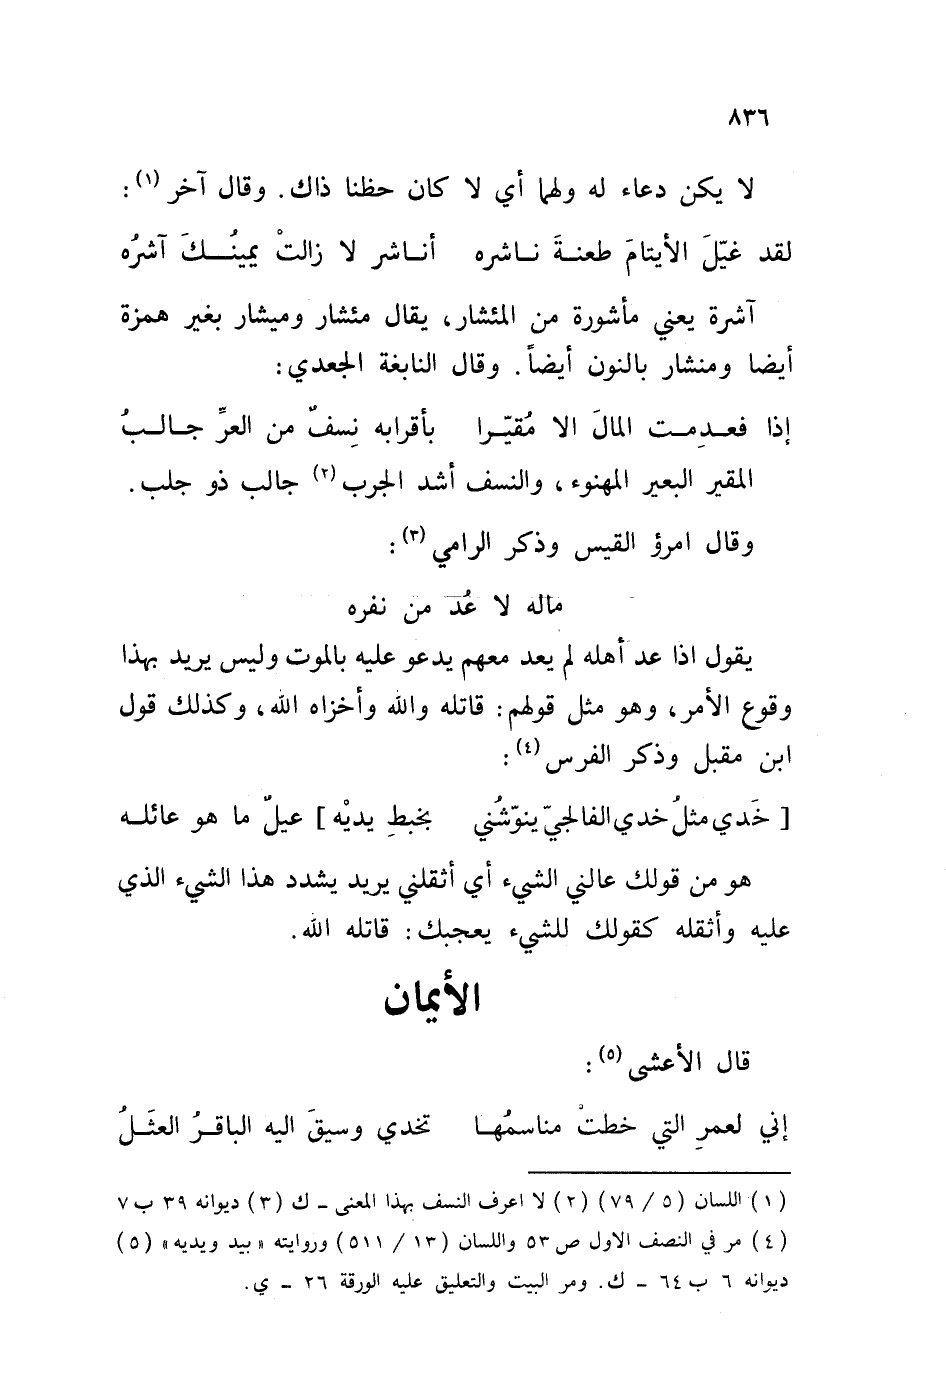 ٨٣٦
لا يكن دعاء له ولهما أي لا كان حظنا ذاك. وقال آخر (١) :
لقد غيّلَ الأيتامَ طعنةَ ناشره أناشر لا زالتْ يمينُكَ آشرُه
آشرة يعني مأشورة من المئشار، يقال مئشار وميشار بغير همزة
أيضا ومنشار بالنون أيضاً. وقال النابغة الجعدي:
إذا فعدِمت المالَ الا مُقيّرا بأقرابه نِسفٌ من العرِّ جالبُ
المقير البعير المهنوء، والنسف أشد الجرب (٢) جالب ذو جلب.
وقال امرؤ القيس وذكر الرامي (٣) :
ماله لا عُد من نفره
يقول اذا عد أهله لم يعد معهم يدعو عليه بالموت وليس يريد بهذا
وقوع الأمر، وهو مثل قولهم: قاتله والله وأخزاه الله، وكذلك قول
ابن مقبل وذكر الفرس (٤) :
[ خَدي مثلُ خدي الفالجيّ ينوّشُني بخبطِ يديْه ] عيلٌ ما هو عائله
هو من قولك عالني الشيء أي أثقلني يريد يشدد هذا الشيء الذي
عليه وأثقله كقولك للشيء يعجبك: قاتله الله.
الأيمان
قال الأعشى (٥) :
إني لعمرِ التي خطتْ مناسمُها تخدي وسيقَ اليه الباقرُ العثَلُ
(١) اللسان (٥ / ٧٩) (٢) لا اعرف النسف بهذا المعنى - ك (٣) ديوانه ٣٩ ب ٧
(٤) مر في النصف الاول ص ٥٣ واللسان (١٣ / ٥١١) وروايته «بيد ويديه» (٥)
ديوانه ٦ ب ٦٤ - ك. ومر البيت والتعليق عليه الورقة ٢٦ - ي.